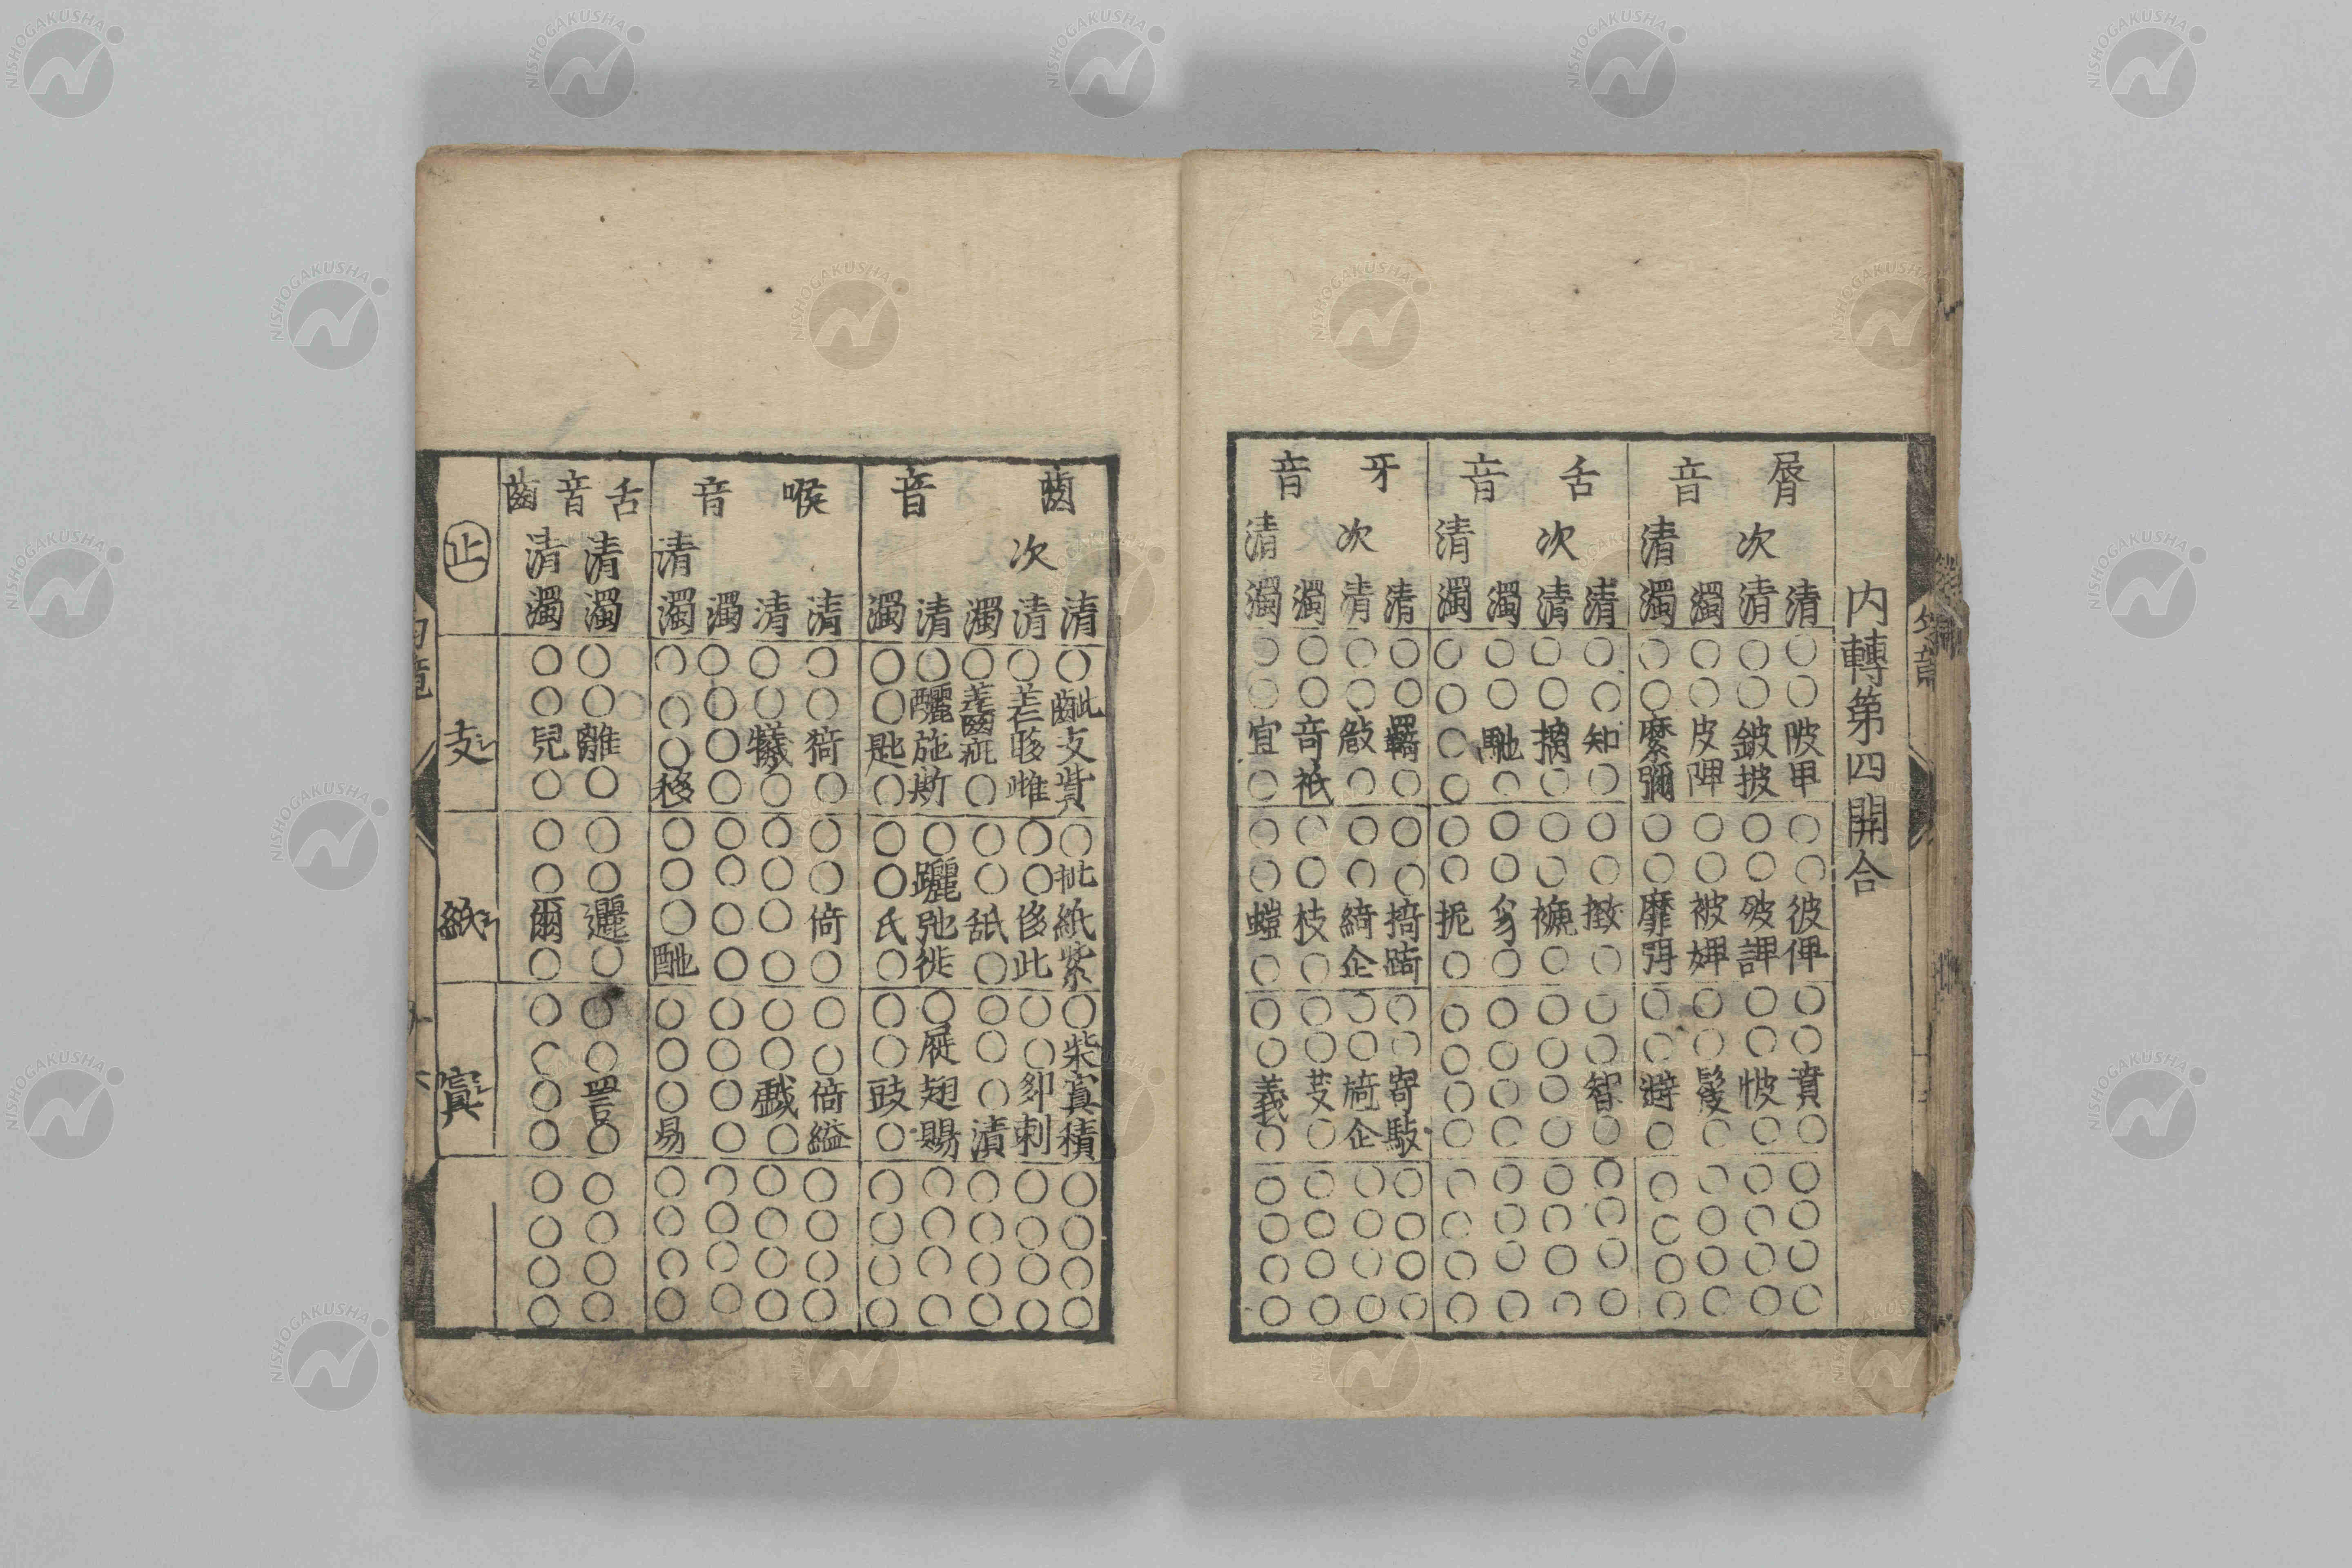 内轉第四開合
脣音
清○○陂卑○○彼俾○○賁○○○○○
次清○○鈹披○○㱟諀○○帔○○○○○
濁○○皮陴○○被婢○○髲○○○○○
清濁○○縻彌○○靡弭○○避○○○○○
舌音
清○○知○○○○○○智○○○○○
次清○○摛○○○○○○○○○○○○
濁○○馳○○○豸○○○○○○○○○
清濁○○○○○○抳○○○○○○○○○
牙音
清○○羈○○○掎踦○○寄○○○○
次清○○敧○○○綺企○○企○○○○
濁○○奇祇○○技○○○芰○○○○○
清濁○○宜○○○螘○○○義○○○○○
齒音
清○齜支貲○批紙紫○柴寘積○○○○
次清○差眵雌○○侈此○○卶刺○○○○
濁○齹疵○○○舐○○○○漬○○○○
清○釃施斯○躧弛徙○屣翅賜○○○○
濁○○匙○○○氏○○○豉○○○○○
喉音
清○○猗○○○倚○○○倚縊○○○○
清○○犧○○○○○○○戲○○○○○
濁○○○○○○○○○○○○○○○○
清濁○○○移○○○酏○○○易○○○○
舌音齒
清濁○○離○○○邐○○○詈○○○○○
清濁○○兒○○○爾○○○○○○○○○
止 支 紙 寘
NISHOGAKUSHA